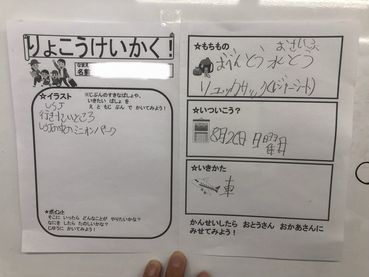 りょこうけいかく！
なまえ
名前
☆イラスト
※じぶんのすきなばしょや、
いきたい ばしょ を
え と もじ ぶん で かいてみよう！
USJ
行きたいところ
USJのミニオンパーク
☆ポイント
そこに いったら どんなことが やりたいかな？
なにを したら たのしいかな？
じゆうに かいてみよう！
☆もちもの
おさいふ
おべんとう 水とう
リュックサック(レジャーシート)
☆いついこう？
8月20日 日曜日
☆いきかた
車
かんせいしたら おとうさん おかあさんに
みせてみよう！